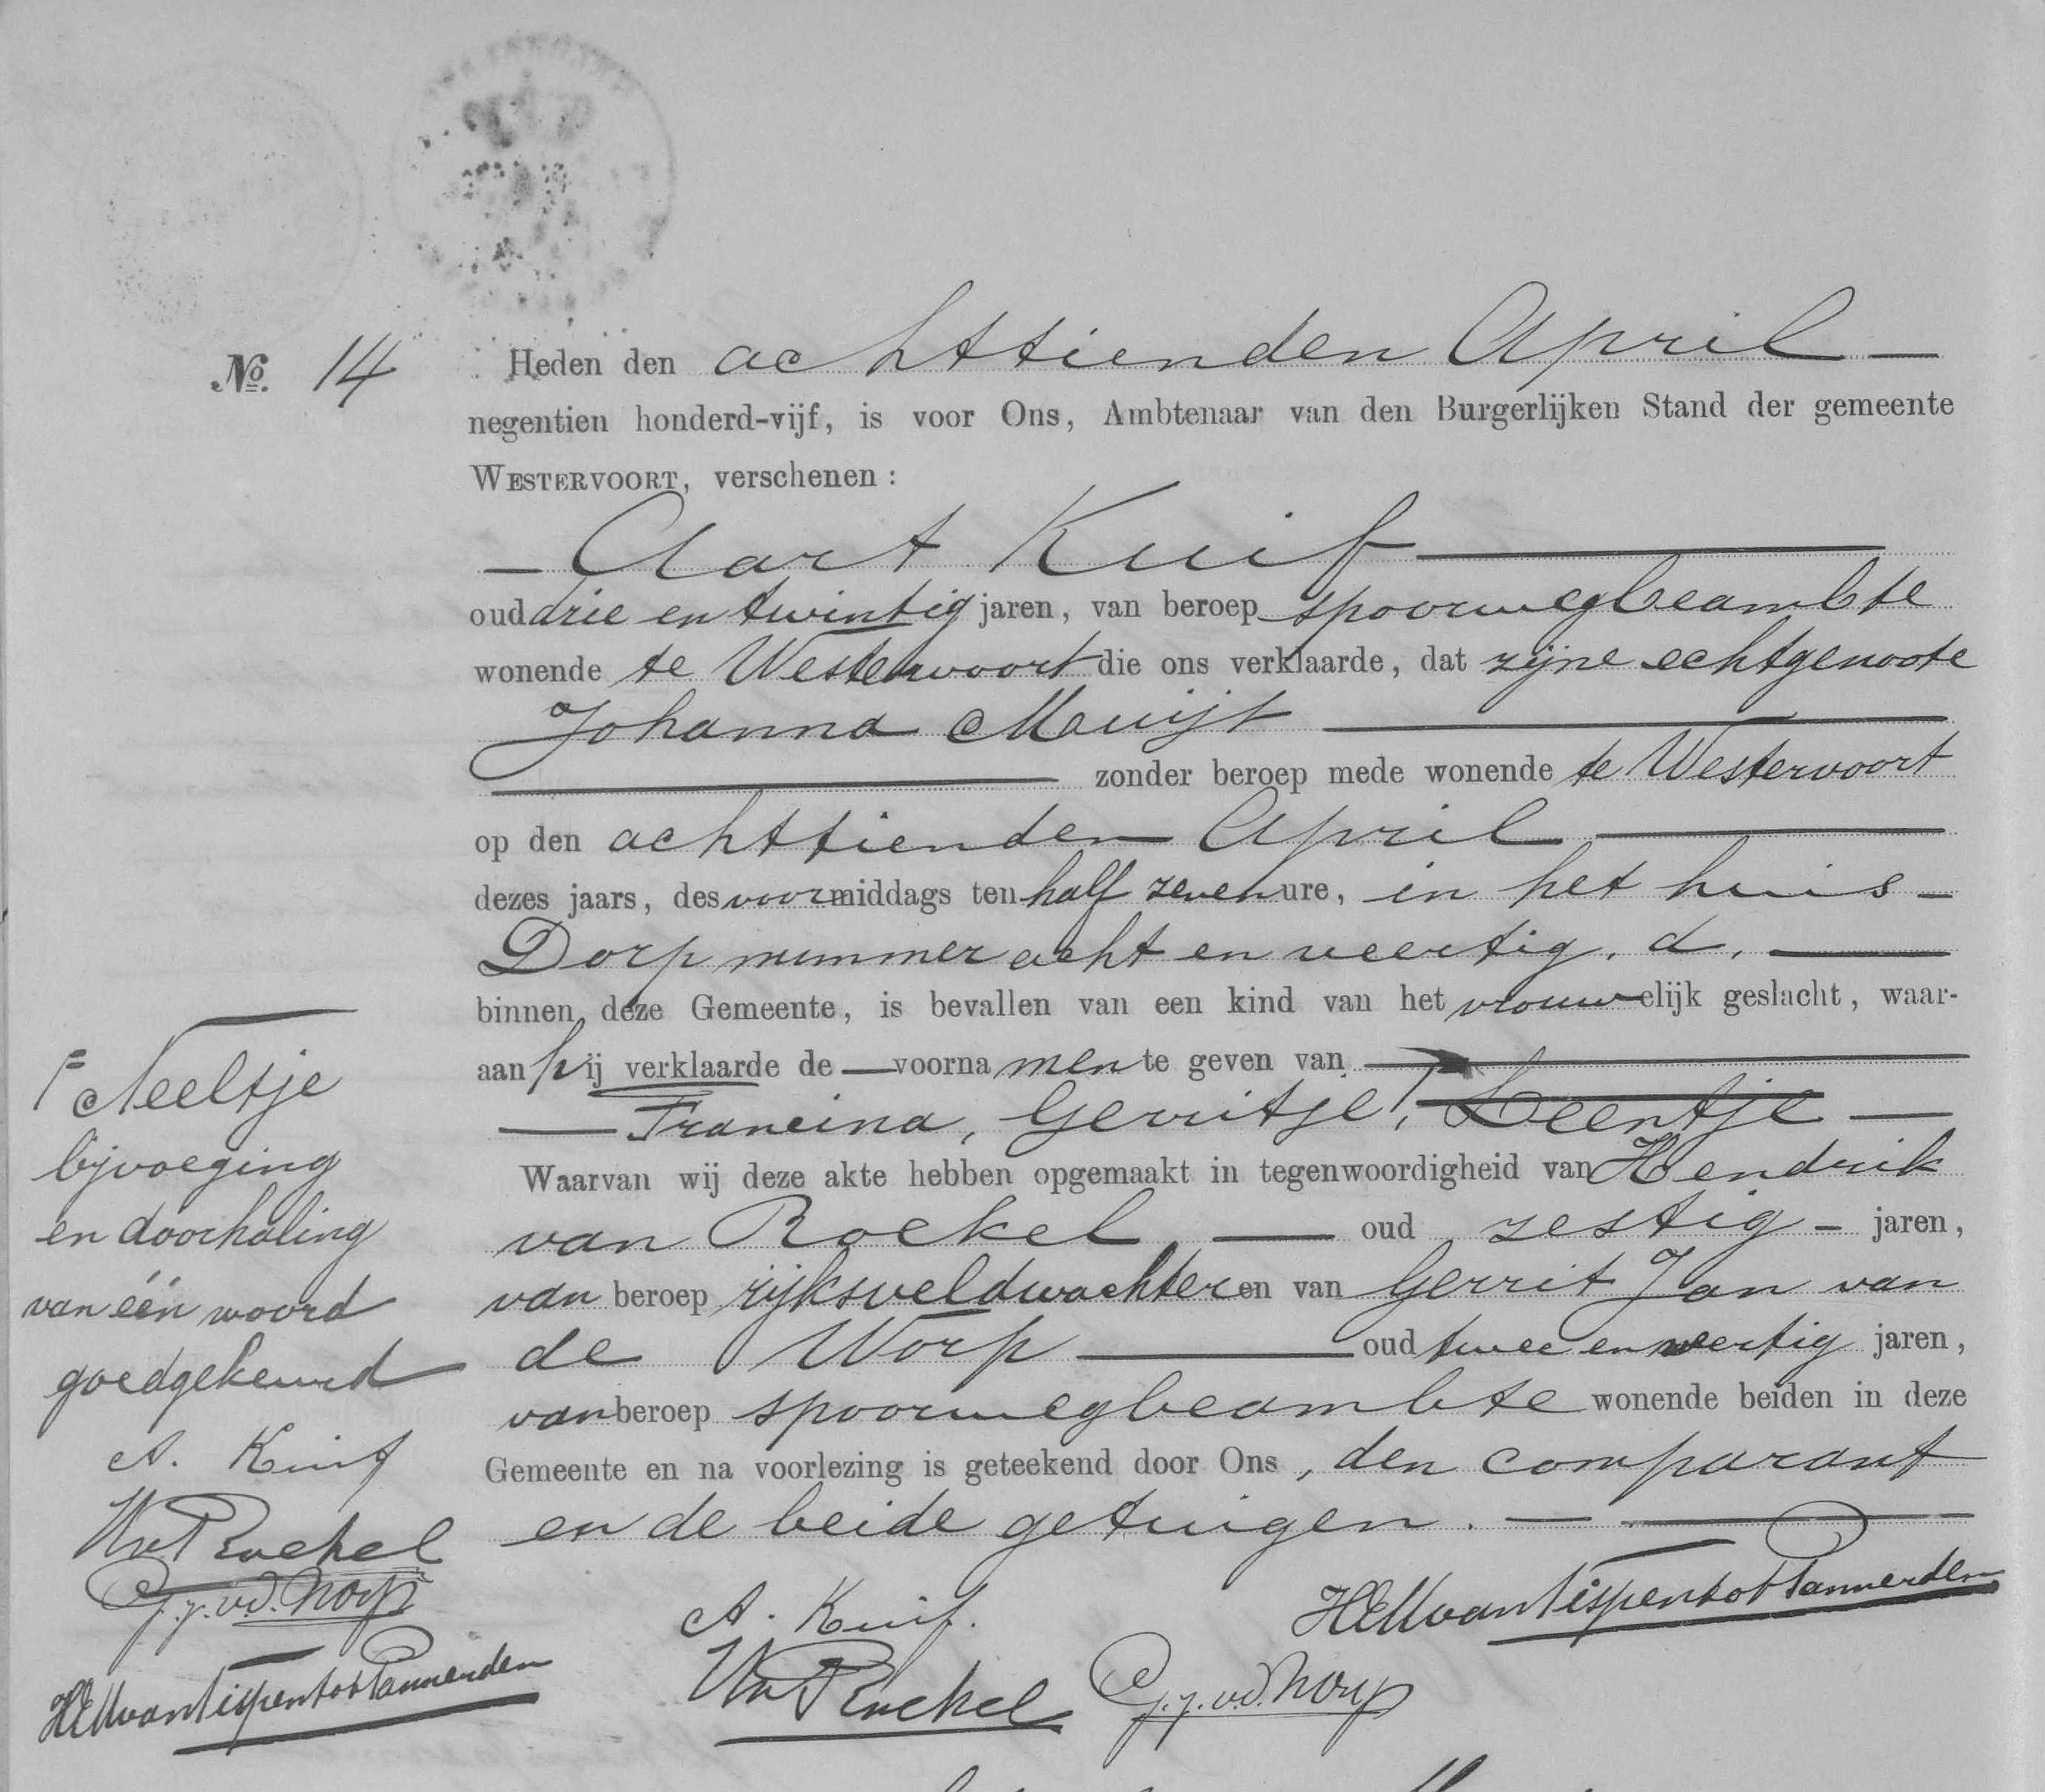 No. 14
Heden den achttienden April
negentien honderd-vijf, is voor Ons, Ambtenaar van den Burgerlijken Stand der gemeente
WESTERVOORT, verschenen :
Aart Kuif
oud drie en twintig jaren, van beroep spoorwegbeambte
wonende te Westervoort die ons verklaarde, dat zijne echtgenoote
Johanna Mouijt
zonder beroep mede wonende te Westervoort
op den achttienden April
dezes jaars, des voormiddags ten half zeven ure, in het huis
Dorp nummer acht en veertig. d.
binnen deze Gemeente, is bevallen van een kind van het vrouwelijk geslacht, waar-
aan hij verklaarde de voornamen te geven van
Francina, Gerritje, Leentje
Waarvan wij deze akte hebben opgemaakt in tegenwoordigheid van Hendrik
van Roekel oud zestig jaren,
van beroep rijksveldwachter en van Gerrit Jan van
de Worp oud twee en veertig jaren,
van beroep spoorwegbeambte wonende beiden in deze
Gemeente en na voorlezing is geteekend door Ons, den comparant
en de beide getuigen.
Neeltje
bijvoeging
en doorhaling
van één woord
goedgekeurd
A. Kuif
HvRoekel
G.J.v.d.Worp
HEMvanNispentotPannerden
A. Kuif.
HvRoekel
G.J.v.d.Worp
HEMvanNispentotPannerden